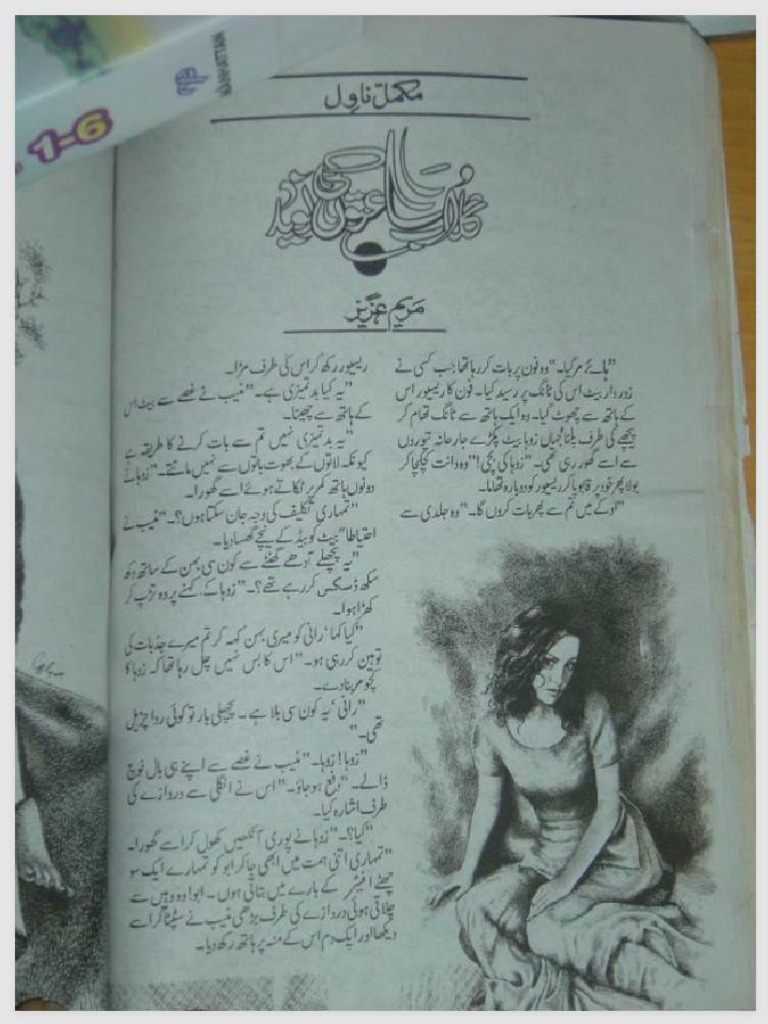 MANHATTAN
1-6
مکمل ناول
گلاب ساعتوں کی نوید
مریم عزیز
”ہائے مرگیا۔“ وہ فون پر بات کر رہا تھا جب کسی نے
زور دار بیٹ اس کی ٹانگ پر رسید کیا۔ فون کا ریسیور اس
کے ہاتھ سے چھوٹ گیا۔ وہ ایک ہاتھ سے ٹانگ تھام کر
پیچھے کی طرف پلٹا جہاں زوہا بیٹ پکڑے جارحانہ تیوروں
سے اسے گھور رہی تھی۔ ”زوہا کی بچی!“ وہ دانت کچکچا کر
بولا پھر خود پر قابو پا کر ریسیور کو دوبارہ تھاما۔
”اوکے میں تم سے پھر بات کروں گا۔“ وہ جلدی سے
ریسیور رکھ کر اس کی طرف مڑا۔
”یہ کیا بدتمیزی ہے۔“ منیب نے غصے سے بیٹ اس
کے ہاتھ سے چھینا۔
”یہ بدتمیزی نہیں تم سے بات کرنے کا طریقہ ہے
کیونکہ لاتوں کے بھوت باتوں سے نہیں مانتے۔“ زوہا نے
دونوں ہاتھ کمر پر ٹکاتے ہوئے اسے گھورا۔
”تمہاری تکلیف کی وجہ جان سکتا ہوں؟۔“ منیب نے
احتیاطاً بیٹ کو بیڈ کے نیچے گھسا دیا۔
”یہ پچھلے آدھے گھنٹے سے کون سی بہن کے ساتھ دکھ
سکھ ڈسکس کر رہے تھے؟۔“ زوہا کے کہنے پر وہ تڑپ کر
کھڑا ہوا۔
”کیا کہا‘ رانی کو میری بہن کہہ کر تم میرے جذبات کی
توہین کر رہی ہو۔“ اس کا بس نہیں چل رہا تھا کہ زوہا کا
کچومر بنا دے۔
”رانی‘ یہ کون سی بلا ہے۔ پچھلی بار تو کوئی ردا چڑیل
تھی۔“
”زوہا! زوہا۔“ منیب نے غصے سے اپنے ہی بال نوچ
ڈالے۔ ”دفع ہو جاؤ۔“ اس نے انگلی سے دروازے کی
طرف اشارہ کیا۔
”کیا؟۔“ زوہا نے پوری آنکھیں کھول کر اسے گھورا۔
”تمہاری اتنی ہمت میں ابھی جا کر ابو کو تمہارے ایک سو
چھٹے افیئر کے بارے میں بتاتی ہوں۔ ابو! وہ وہیں سے
چلاتی ہوئی دروازے کی طرف بڑھی منیب نے سٹپٹا کر اسے
دیکھا اور ایک دم اس کے منہ پر ہاتھ رکھ دیا۔